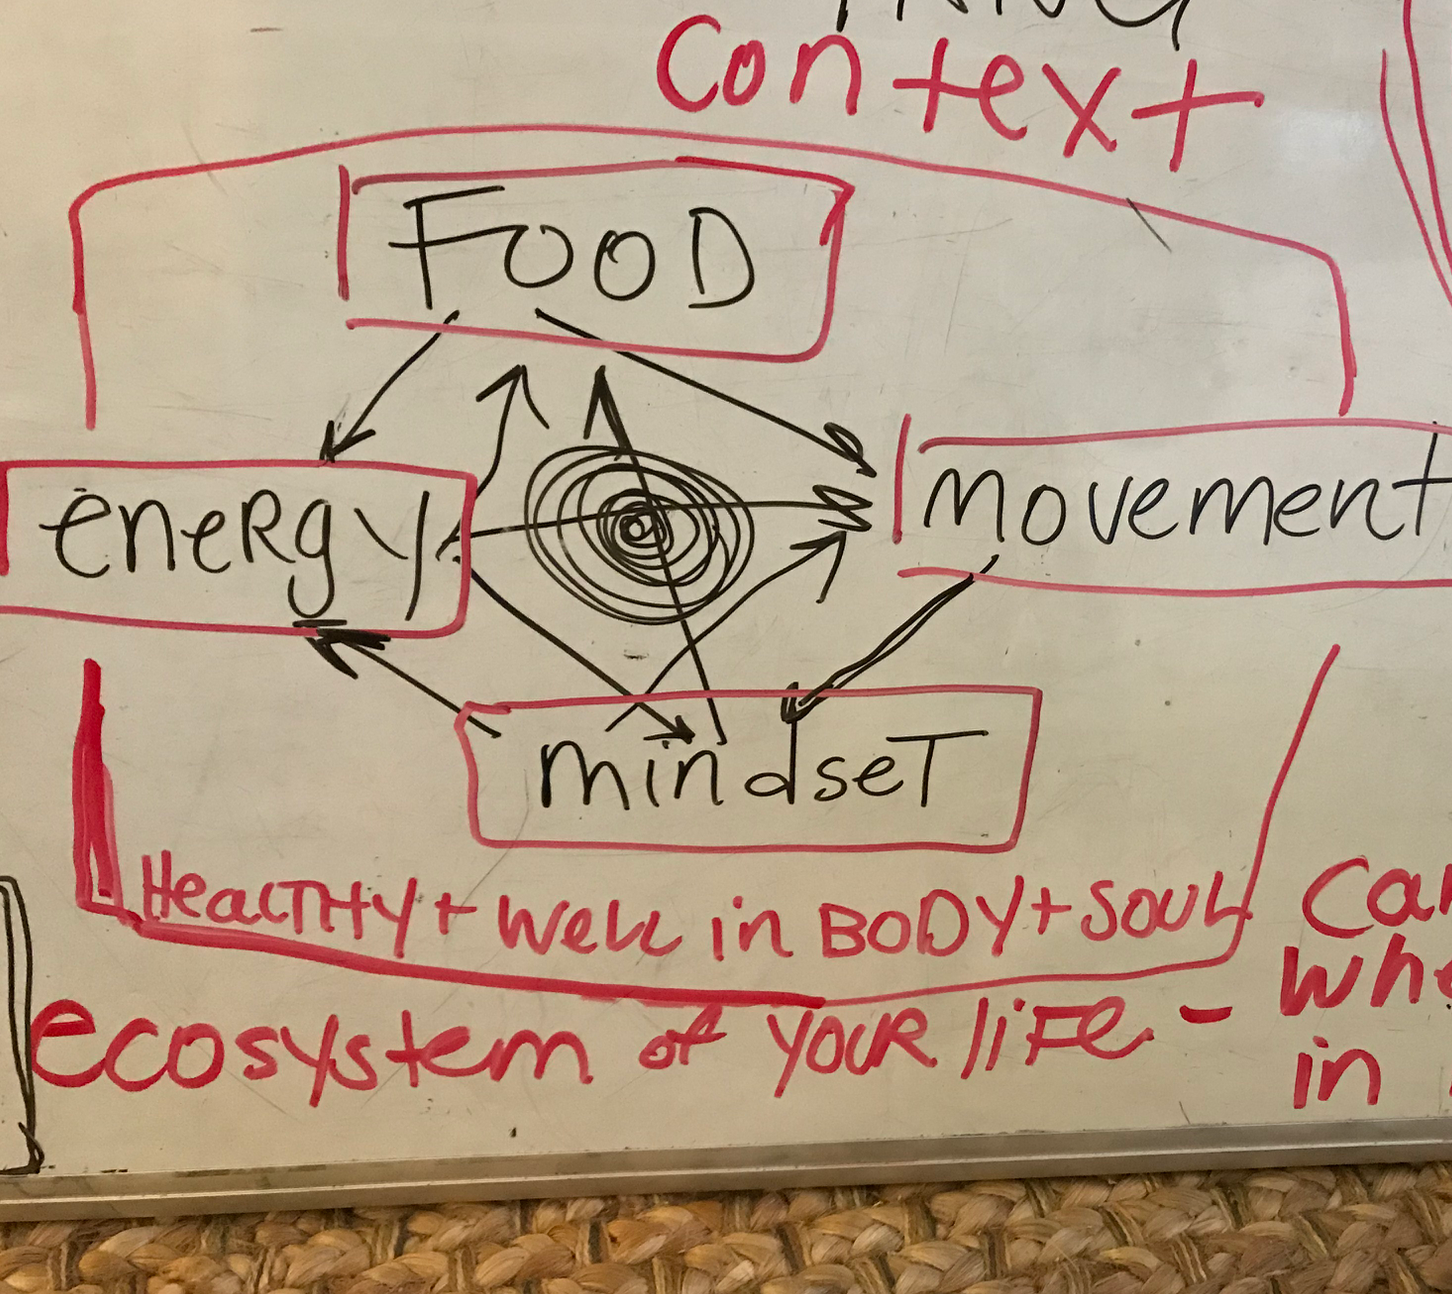 Context
FOOD
energy
movement
mindseT
HeaLTHy + well in BODY + SOUL
ecosystem of YOUR liFe -
in